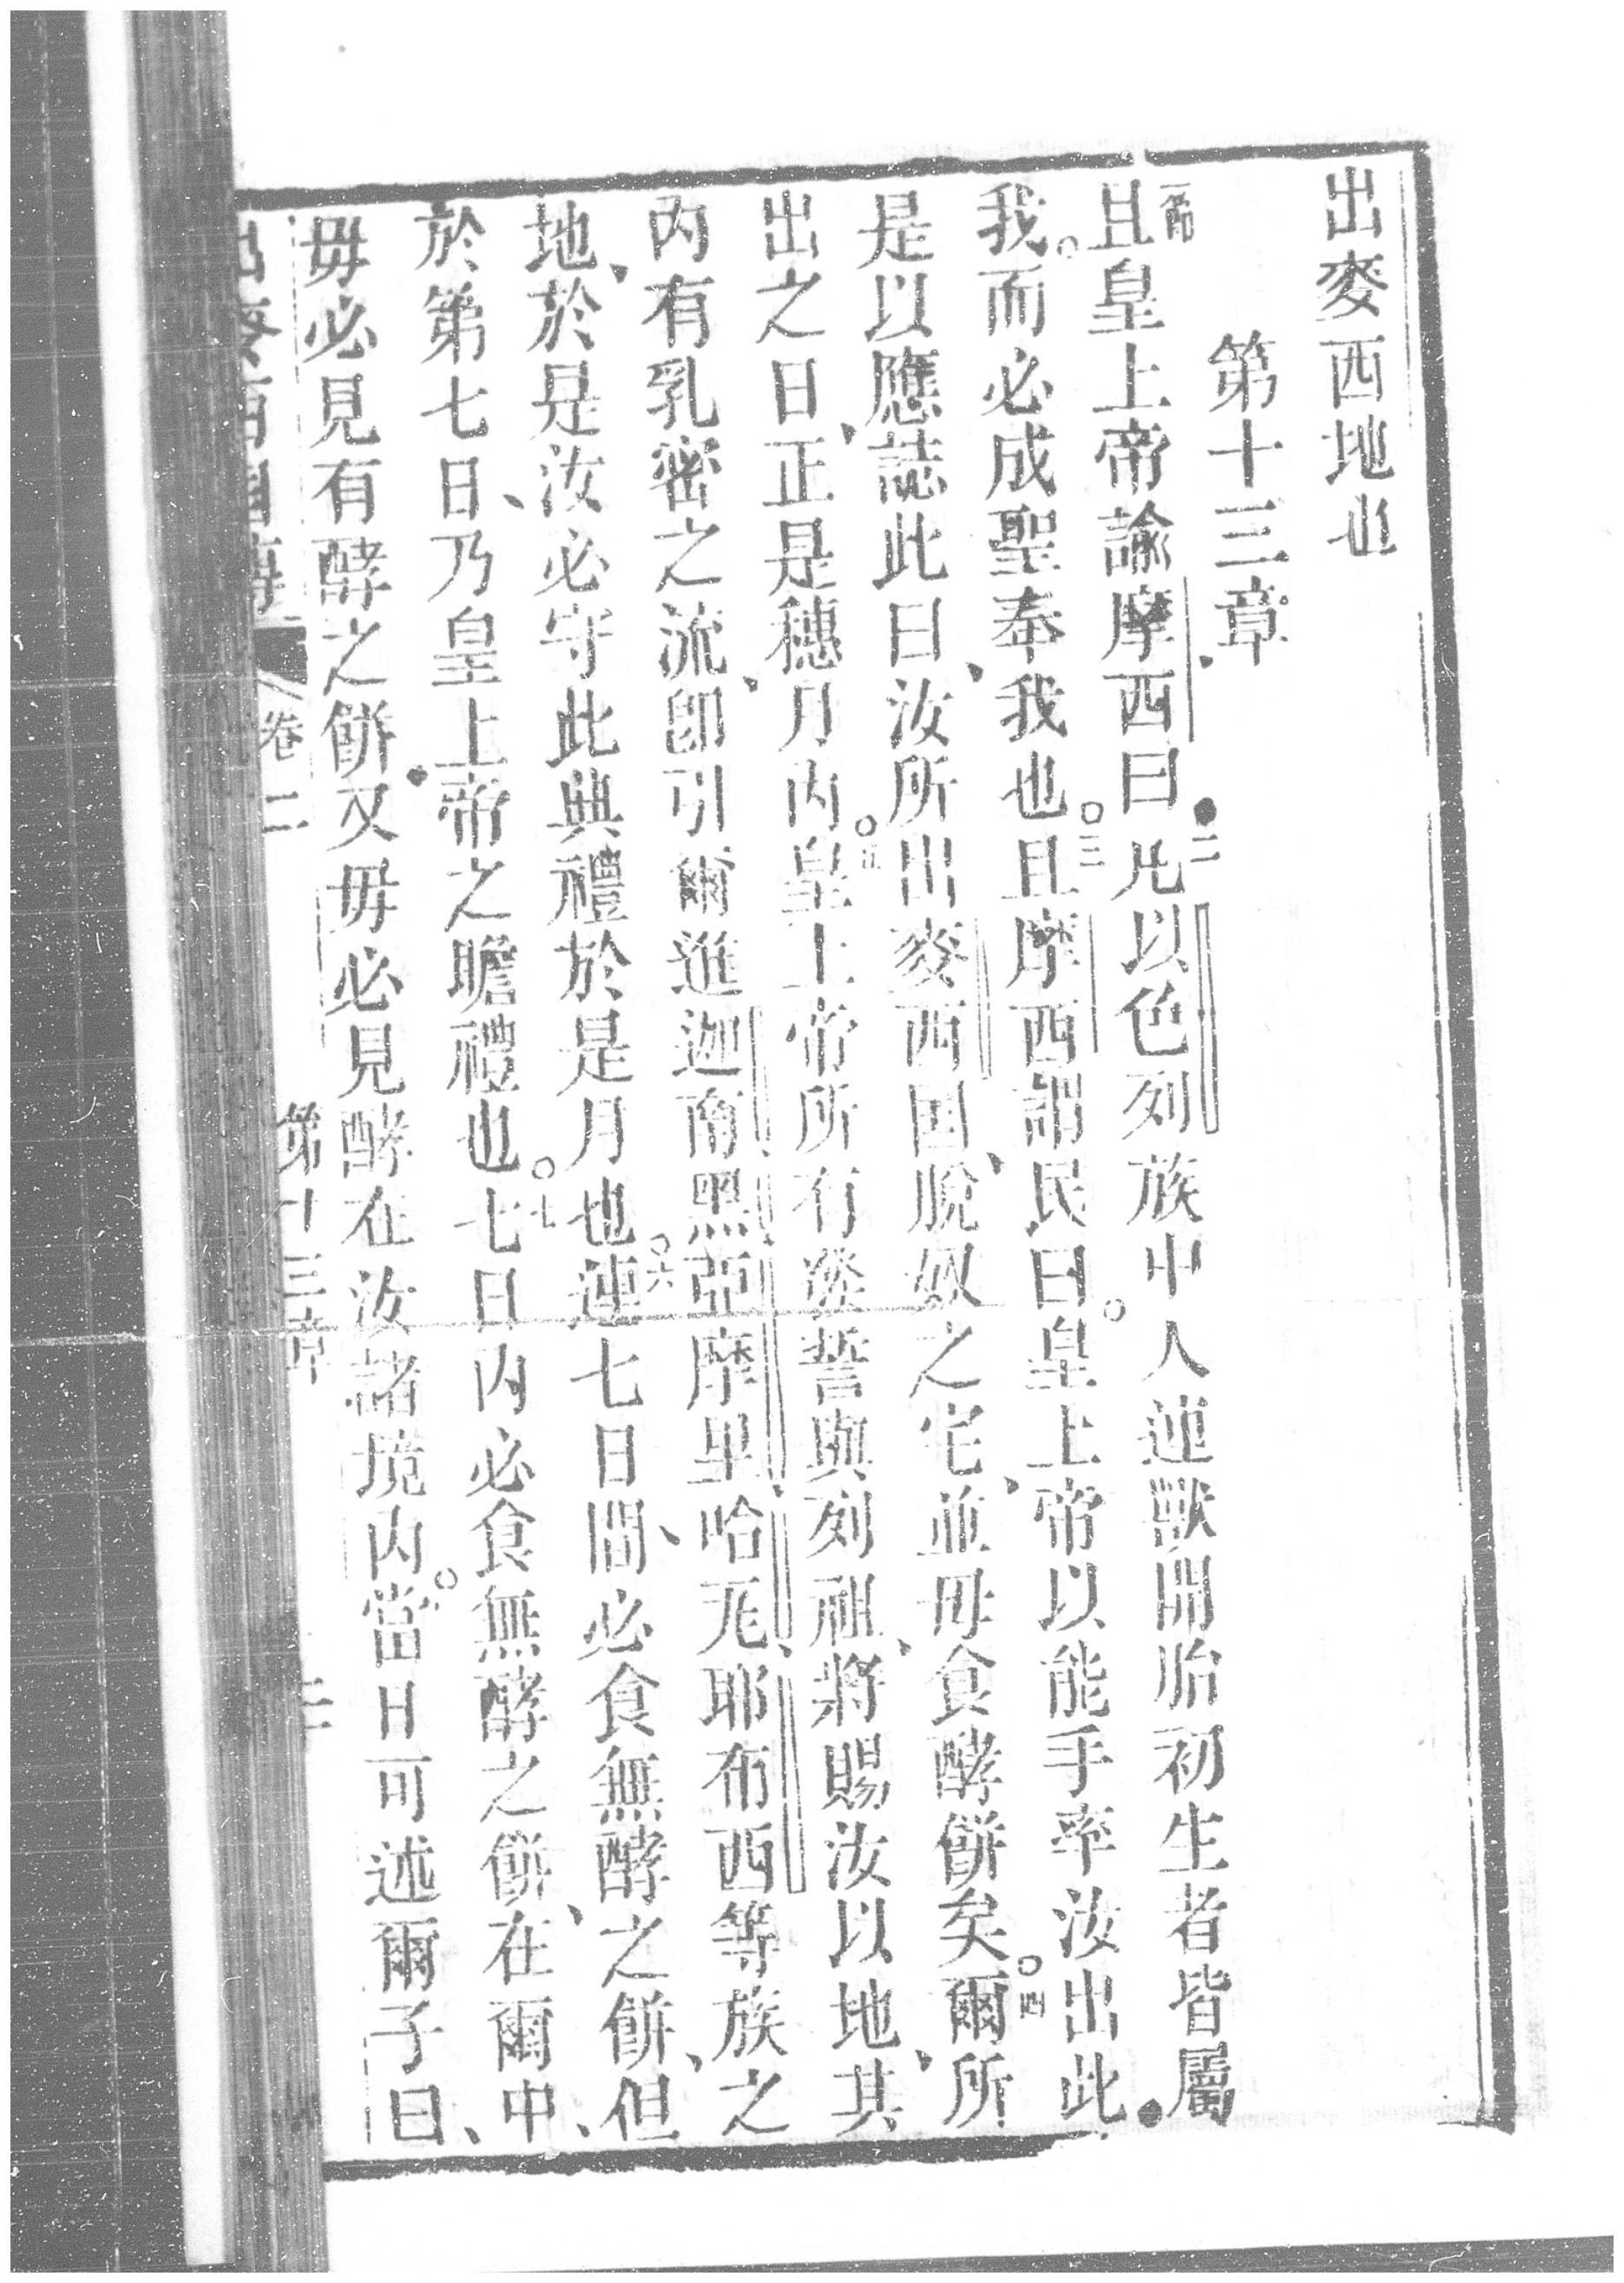 出麥西地也
第十三章
一節且皇上帝諭摩西曰二凡以色列族中人連獸開胎初生者皆屬
我而必成聖奉我也三且摩西謂民曰皇上帝以能手率汝出此
是以應誌此日汝所出麥西國脫奴之宅並毋食酵餅矣四爾所
出之日正是穗月內五皇上帝所有發誓與列祖將賜汝以地其
內有乳密之流卽引爾進迦南黑亞摩里哈尾耶布西等族之
地於是汝必守此典禮於是月也六連七日間必食無酵之餅但
於第七日乃皇上帝之瞻禮也七七日內必食無酵之餅在爾中
毋必見有酵之餅又毋必見酵在汝諸境內當日可述爾子曰
卷二 第十三章